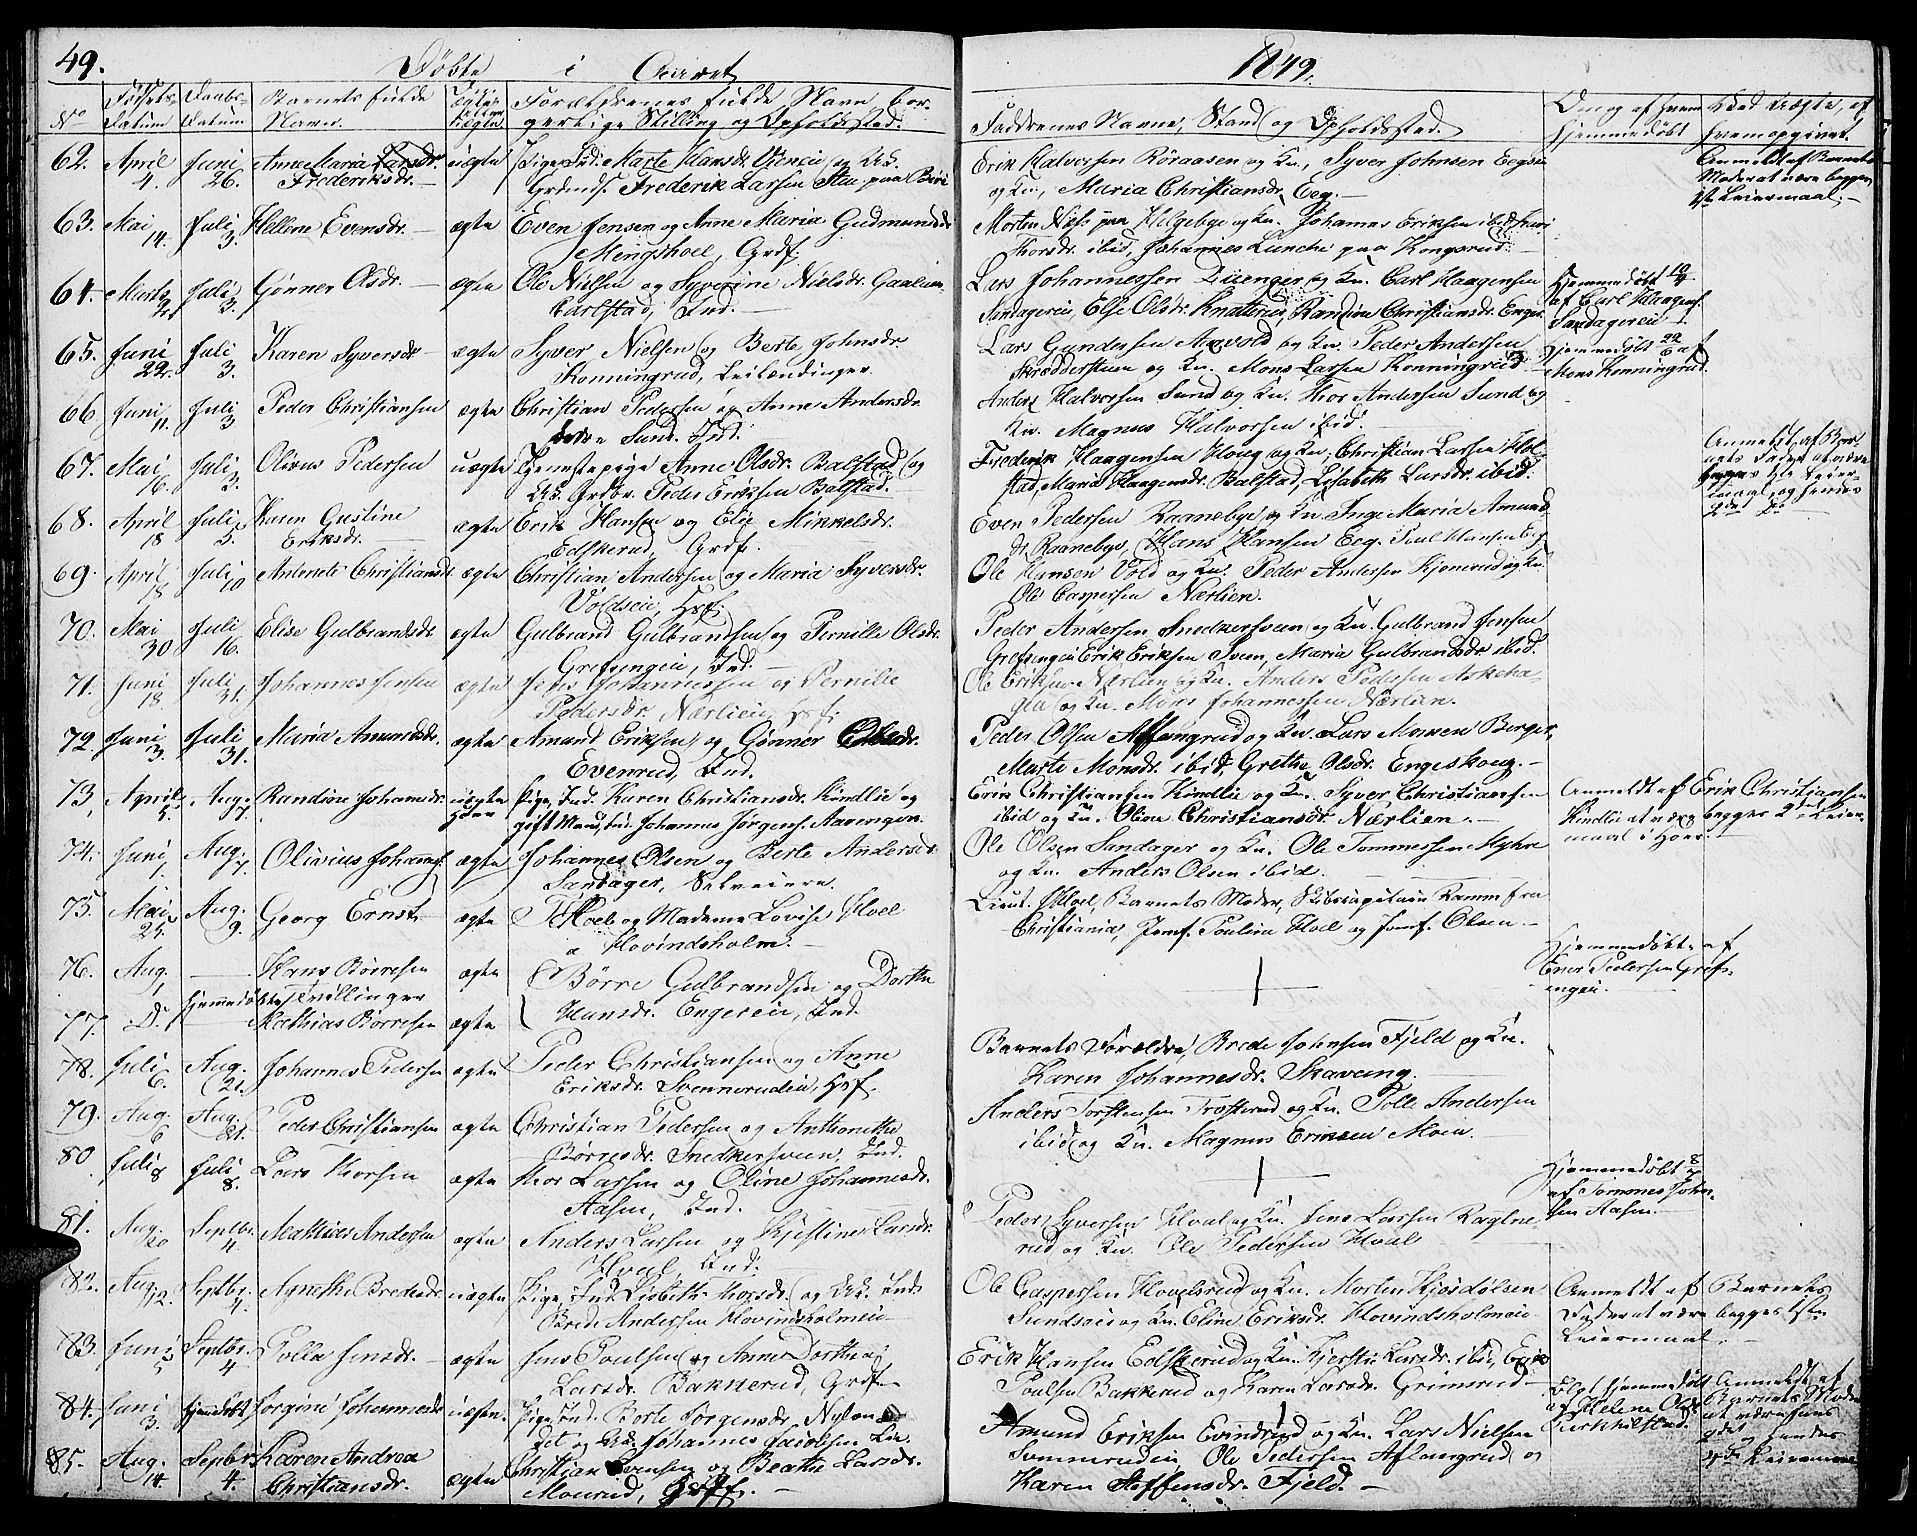 49.
Døbte i Aaret
1849.
No
Fødsels-
Datum
Daabs-
Datum
Barnets fulde
Navn.
Forældrenes fulde Navn bor-
gerlige Stilling og Opholdssted.
Faddrenes Navne, Stand og Opholdssted.
Om og af hvem
hjemmedøbt
62. April 4. Juni 26. Anne Maria Larsdr. Frederiksdr. uægte Pige Ind. Marte Hansdr. og
Grdmds. Frederik Larsen Stu paa Biri
Erik Halvorsen Røraasen og Kn., Syver Johnsen
og Kn., Maria Christiansdr. Eeg.
Anmeldt af Barnets
Moder at være begges
1st Leiermaal.
63. Mai 14. Juli 3. Hellene Evensdr. ægte Even Jensen og Anne Maria Gudmundsdr.
Mengshoel, Grdf.
Morten Næss paa Helgebye og Kn. Johannes Eriksen ibid,
Thorsdr. ibid, Johannes paa Kongsrud.
64. Marts Juli 3. Gønner Olsdr. ægte Ole Nielsen og Syverine Nielsdr.
Carlstad, Ind.
Lars Johannessen og Kn. Carl Haagensen
Sandagereie, Else Olsdr. Knatterud, Randine Christiansdr. Enger
Hjemmedøbt
af Carl Haagens.
Sandagereie
65. Juni 22. Juli 3. Karen Syversdr. ægte Syver Nielsen og Berte Johnsdr.
Konningrud, Leilændinger
Lars Gundersen og Kn. Peder Andersen
Skrædderstuen og Kn. Mons Larsen Konningrud
Hjemmedøbt 22/6 af
Mons Konningrud.
66 Juni 11. Juli 3 Peder Christiansen ægte Christian Pedersen og Anne Andersdr.
Sund. Ind.
Anders Halvorsen Sund og Kn. Thor Andersen Sund og
Kn. Magnus Halvorsen ibid.
67. Mai 16. Juli 3. Olivus Pedersen uægte Tjenestepige Anne Olsdr. Balstad og
Peder Eriksen Balstad.
Frederik Haagensen Houg og Kn., Christian Larsen
Maria Haagensdr. Balstad, Lisabeth Larsdr. ibid.
68. April 18 Juli 5. Karen Gustine
Eriksdr. ægte Erik Hansen og Elie Mikkelsdr.
Edskerud, Grdf.
Even Pedersen Raanebye og Kn. Inge Maria Amunds-
dr. Raanebye, Hans Hansen Eeg. Poul Hansen Eeg
69. April 18 Juli 10 Antonete Christiansdr. ægte Christian Andersen og Maria Syversdr.
Voldseie, Hsf.
Ole Hansen Vold og Kn. Peder Andersen Kjonerud og Kn.
Ole Caspersen Nærlien.
70. Mai 30 Juli 16. Elise Gulbrandsdr. ægte Gulbrand Gulbrandsen og Pernille Olsdr.
Grefsengeie, Ind.
Peder Andersen Snedkersveen og Kn. Gulbrand Jensen
Grefsengeie Erik Eriksen Sveen, Maria Gulbrandsdr. ibid.
71. Juni 18. Juli 31. Johannes Jensen ægte Jens Johannessen og Pernille
Pedersdr. Nærlien, Hsf.
Ole Eriksen Nærlien og Kn. Anders Pedersen
og Kn. Mons Johannessen Nærlien.
72. Juni 3. Juli 31. Maria Amundsdr. ægte Amund Eriksen og Gønner Olsdr.
Evenrud, Ind.
Peder Olsen Aflangrud og Kn. Lars Monsen Berger,
Marte Monsdr. ibid, Grethe Olsdr. Engeskoug.
73. April 5. Aug. 7. Randine Johansdr. uægte Pige, Ind. Karen Christiansdr. Kindlie og
gift Mand, Ind. Johannes Jørgens. Aarengen.
Erik Christiansen Kindlie og Kn. Syver Christiansen
ibid og Kn. Oline Christiansdr. Nærlien.
Anmeldt af Erik Christiansen
Kindlie at være begges 2det Leier-
maal i Hoer.
74. Juni 1. Aug. 7. Olivius Johannes. ægte Johannes Olsen og Berte Andersdr.
Sandager, Selveiere.
Ole Olsen Sandager og Kn. Ole Tommessen Myhre
og Kn. Anders Olsen ibid.
75. Mai 25. Aug. 9. Georg Ernst ægte Hoel og Madame Lovise Hoel
Hovindsholm.
Lieut. Hoel, Barnets Moder, Skibscapitain Ramm fra
Christiania, Jomf. Pouline Hoel og Jomf. Olsen.
76. Aug. 1 Hans Børresen ægte Børre Gulbrandsen og Dorthe
Hansdr. Engereie, Ind.
Hjemmedøbt af
Ener Pedersen Grefs-
engeie.
hjemmedøbte Tvillinger
77. D. Mathias Børresen ægte
78. Juli 6. Aug. 21. Johannes Pedersen ægte Peder Christiansen og Anne
Eriksdr. Svennerudeie, Hsf.
Barnets Forældre, Brede Johnsen Fjeld og Kn.
Karen Johannesdr. Skaveng
79. Aug. 6 Aug. 21. Peder Christiansen ægte Christian Pedersen og Anthonette
Børresdr. Snedkersveen. Ind.
Anders Torstensen Trosterud og Kn. Polle Andersen
ibid og Kn. Magnus Eriksen Moen.
80. Juli 8 Juli 8. Lars Thorsen ægte Thor Larsen og Oline Johannesdr.
Aasen, Ind.
Hjemmedøbt 8/7
af Tommes John-
sen Aasen.
81. Aug. 20 Septbr. 4. Mathias Andersen ægte Anders Larsen og Kjestine Larsdr.
Hval, Ind.
Peder Syversen Hval og Kn. Jens Larsen
rud og Kn. Ole Pedersen Hval
82. Aug. 12. Septbr. 4. Agnethe Bredesdr. uægte Pige, Ind. Lisbeth Thorsdr. og Ind.
Brede Andersen Hovindsholmeie
Ole Caspersen Hovelsrud og Kn. Morten Kjosdølsen
Sundseie og Kn. Eline Eriksdr. Hovindsholmeie
Anmeldt af Barnets
Fader at være begges 1ste
Leiermaal.
83. Juni 5 Septbr. 4 Polla Jensdr. ægte Jens Poulsen og Anne Dorthea
Larsdr. Bakkerud, Grdf.
Erik Hansen Edskerud og Kn. Kjersti Larsdr. ibid, Erik
Poulsen Bakkerud og Karen Larsdr. Grimsrud
84. Juni 3. hjemdøbt Jørgine Johannesdr. uægte Pige Ind. Berte Jørgensdr. Nylan-
det og Johannes Jacobsen Lie
Blot hjemmedøbt
af Helene Olsdr.
Anmeldt af
Barnets Moder
at være hans
2det og hendes
Leiermaal
85. Aug. 14. Septbr. 4. Karen Andrea
Christiansdr. ægte Christian Evensen og Beathe Larsdr.
Mourud, Grdf.
Amund Eriksen Evindrud og Kn. Lars Nielsen
Sommerudeie, Ole Pedersen Aflangrud og
Karen Steffensdr. Fjeld.